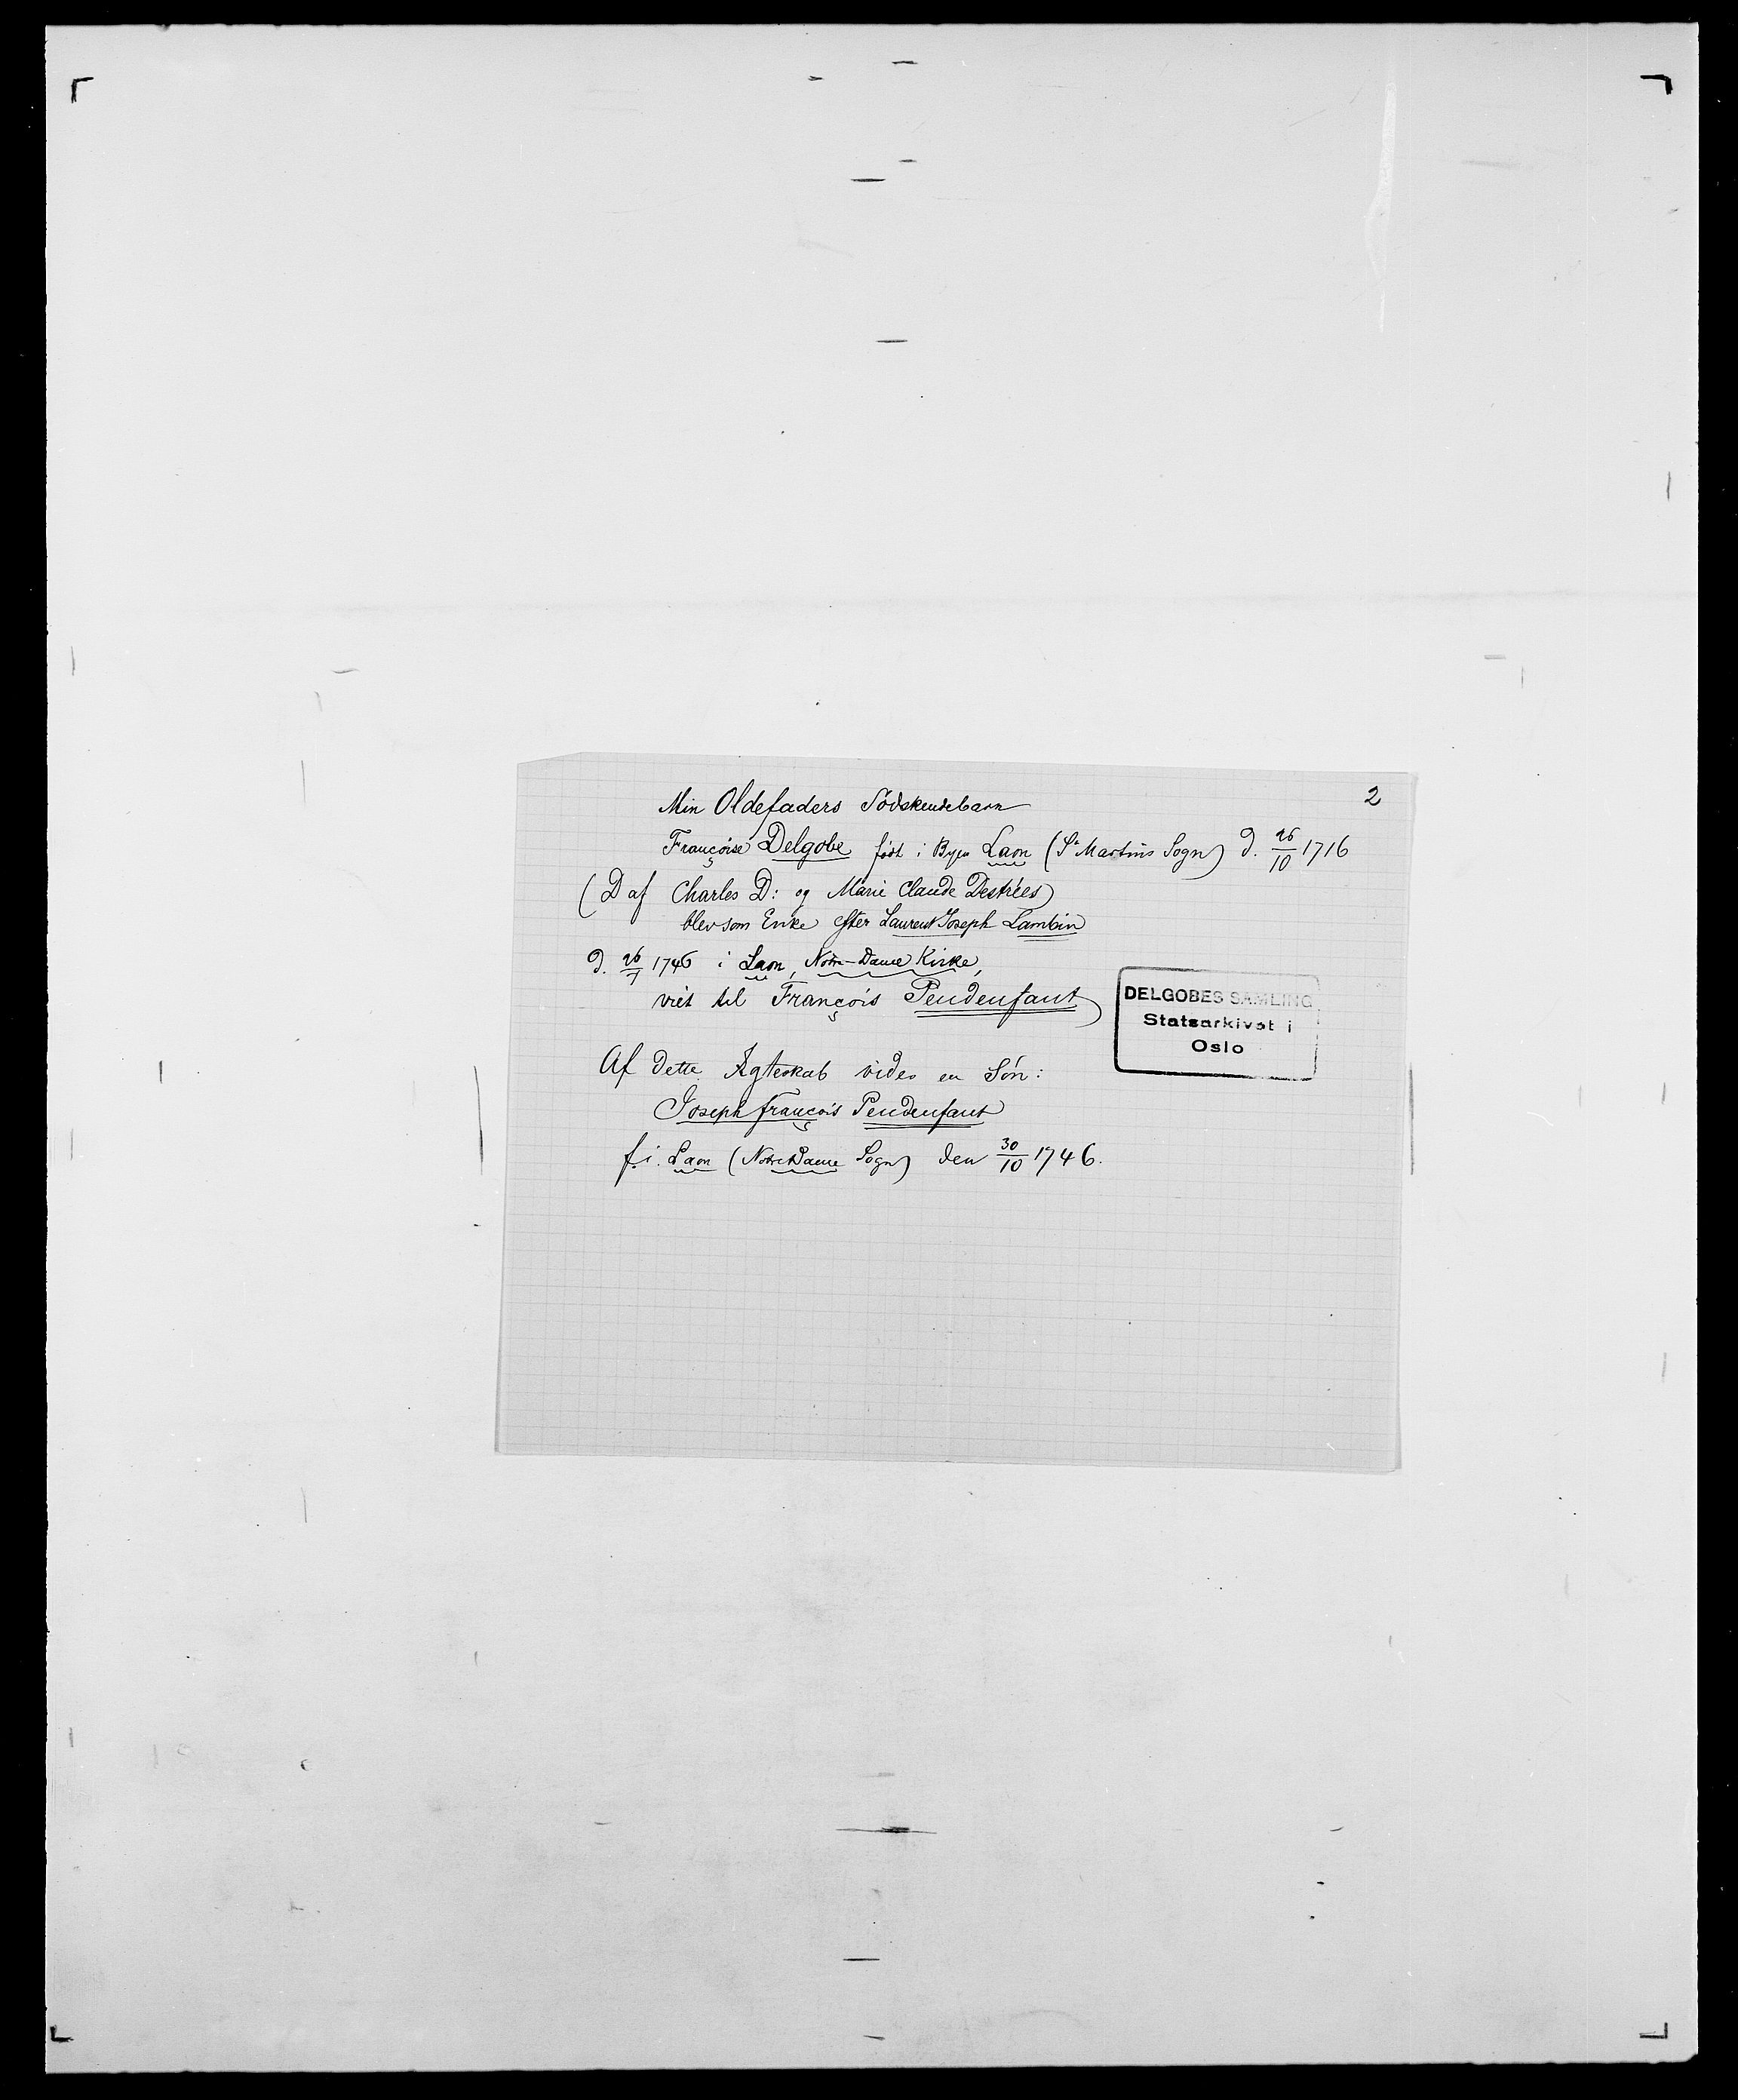 2
Min Oldefaders Södskendebarn
Françoise Delgobe født i Byen Laon (St Martins Sogn) d. 26/10 1716
(D af Charles D: og Marie Claude Destrées)
blev som Enke efter Laurent Joseph Lambin
d. 26/7 1746 i Laon, Notre-Dame Kirke,
viet til François Pendenfant
DELGOBES SAMLING
Statsarkivet i
Oslo
Af dette Ægteskab vides en Són:
Joseph françois Pendenfant
f. i. Laon (Notre Dame Sogn) den 30/10 1746.